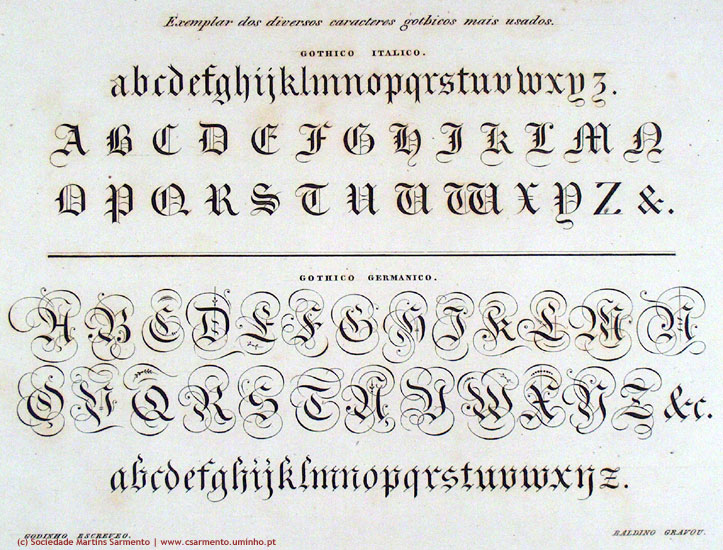 Exemplar dos diversos caracteres gothicos mais usados.
GOTHICO ITALICO.
abcdefghijklmnopqrstuvwxyz.
A B C D E F G H I K L M N
O P Q R S T U U W X Y Z &.
GOTHICO GERMANICO.
A B C D E F G H I K L M N
O P Q R S T U V W X Y Z &c.
abcdefghijklmnopqrstuvwxyz.
GODINHO ESCREVEO.
BALDINO GRAVOU.
(c) Sociedade Martins Sarmento | www.csarmento.uminho.pt